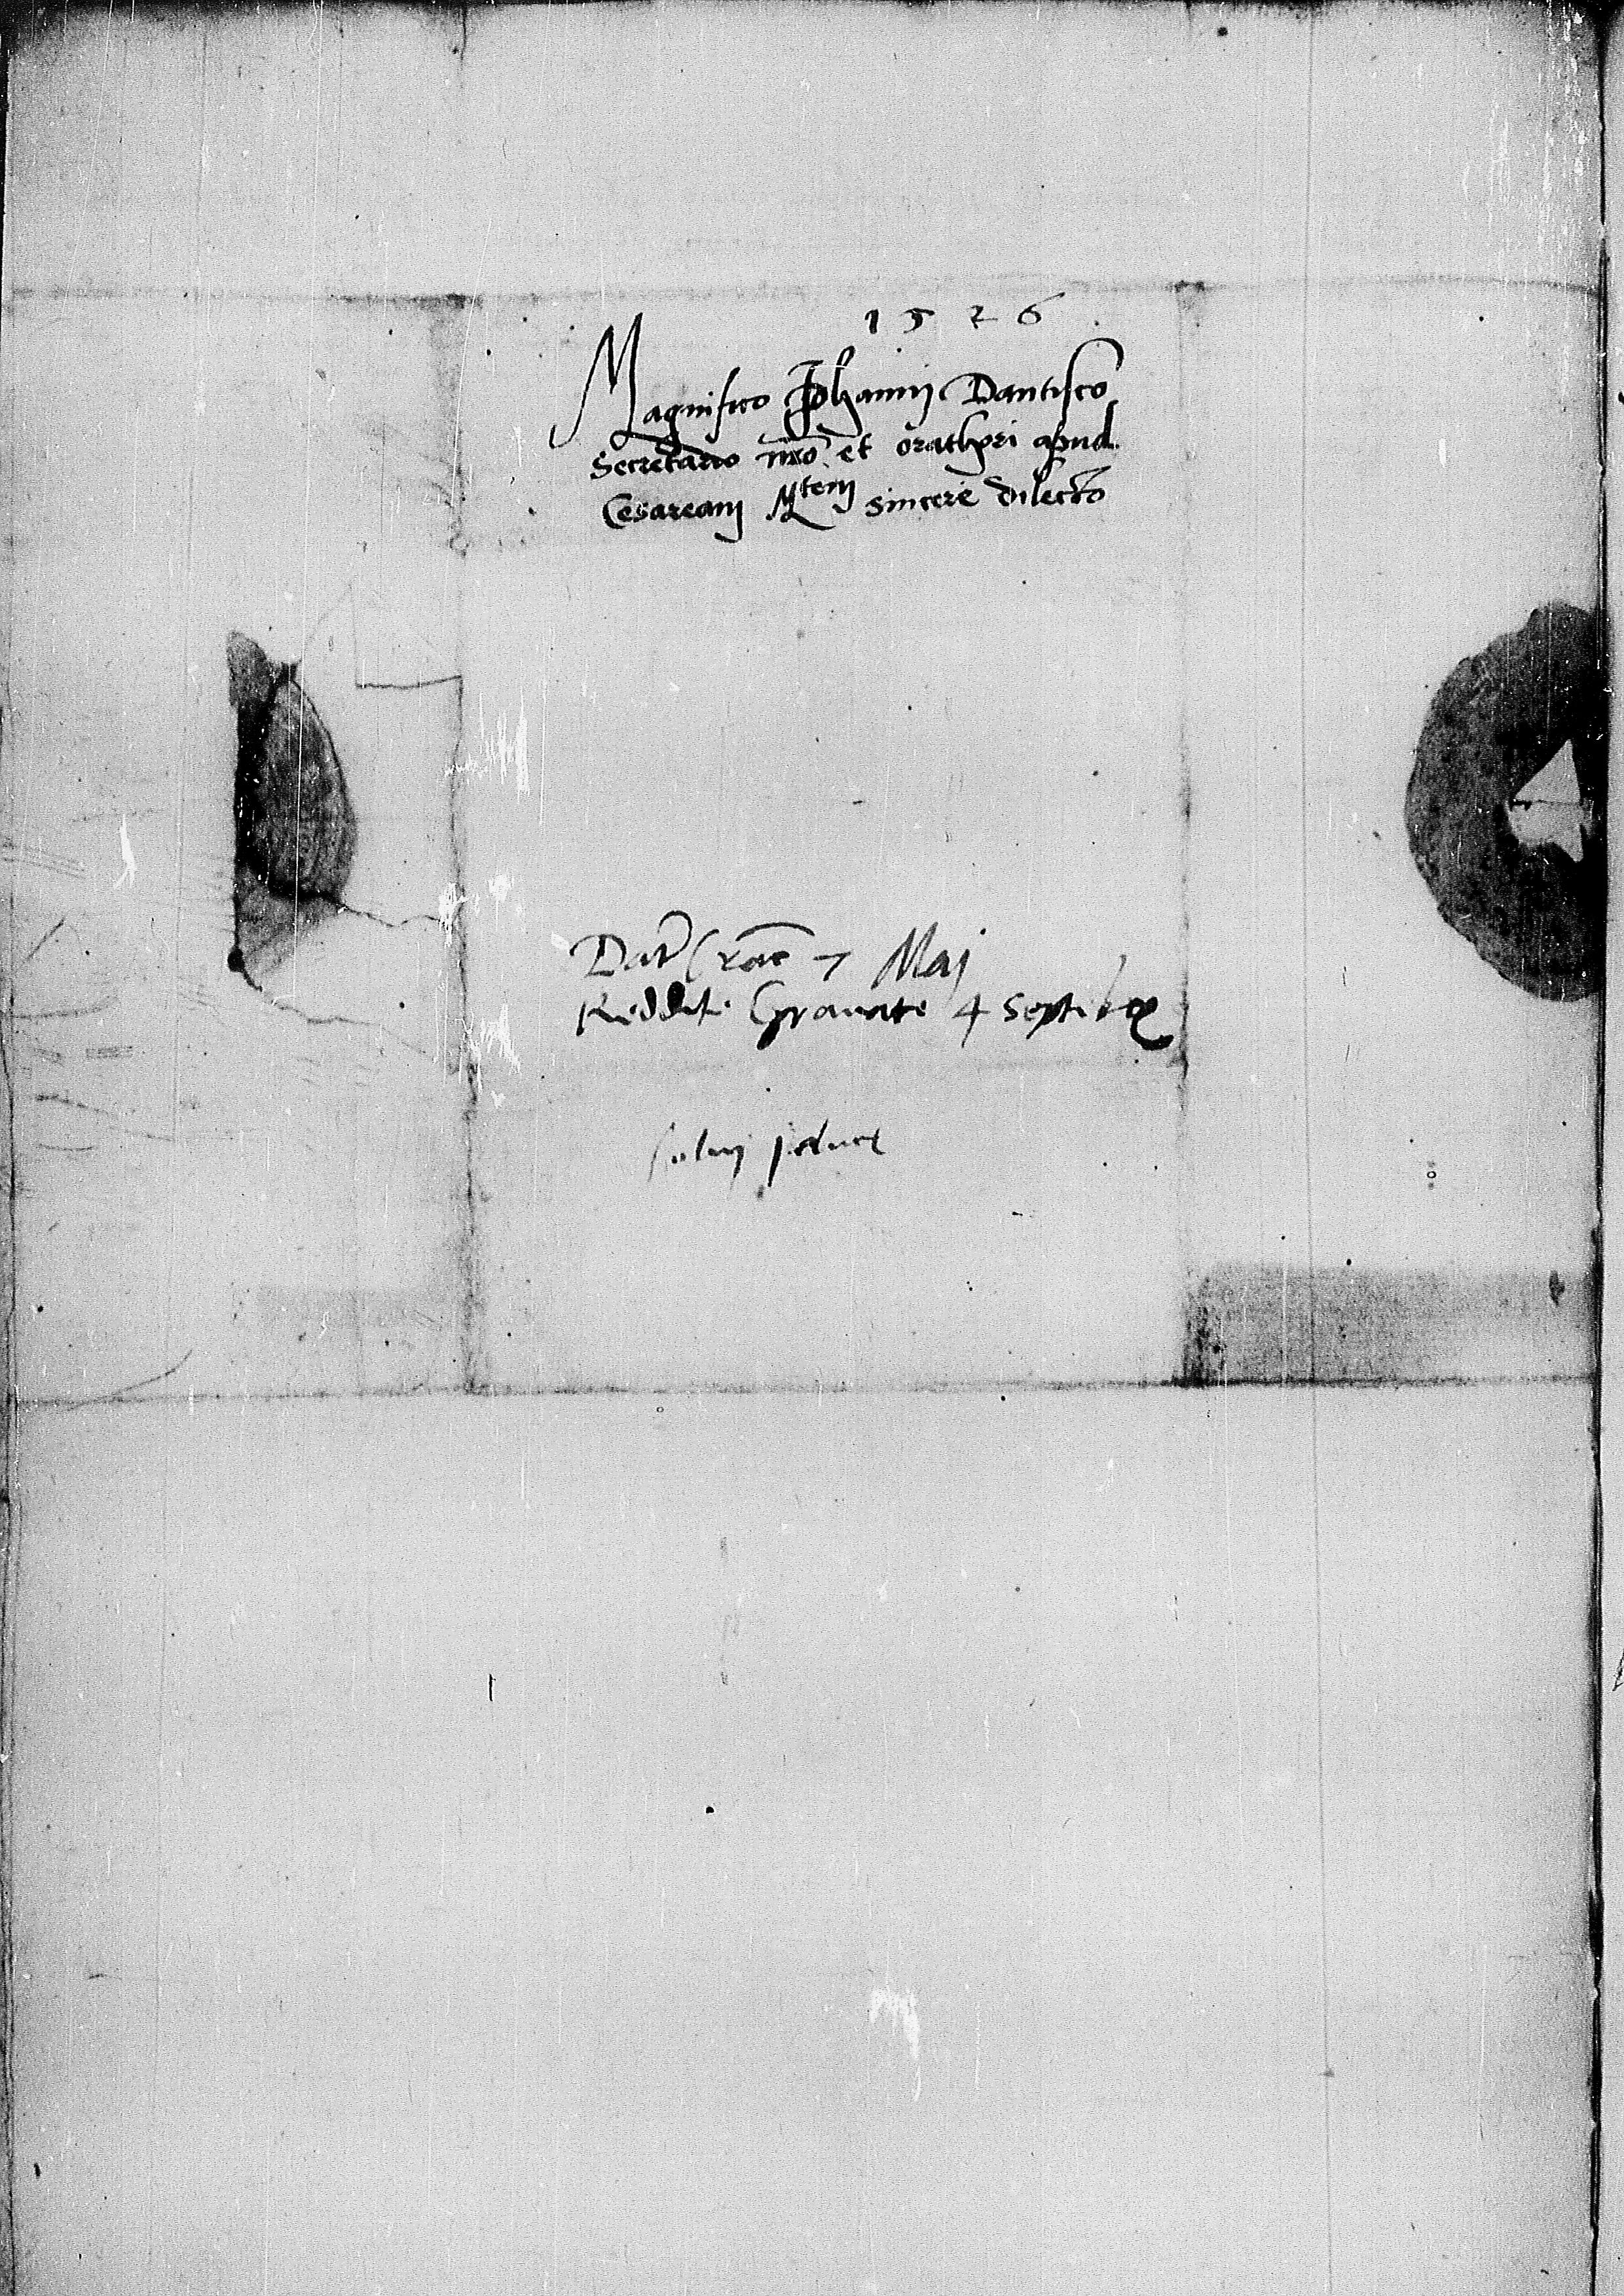 1526
Magnifico Johanni Dantisco
Secretario nr̃o et orathori apud
Cesaream Mtem sincere dilecto
Dat Crac 7 Maj
Reddit Granate 4 Septibr
solui j duct